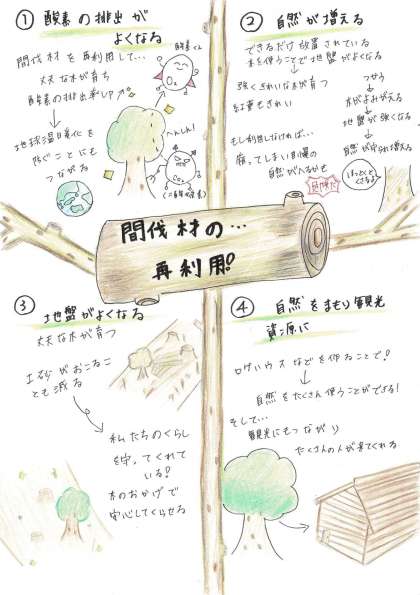 ① 酸素の排出が
よくなる
間伐材を再利用して…
丈夫な木が育ち
酸素の排出率UP↗
↓
地球温暖化を
防ぐことにも
つながる
酸素くん
O₂
へんしん!
CO₂
(二酸化炭素)
② 自然が増える
できるだけ放置されている
木を使うことで地盤がよくなる
↓
強くきれいな木が育つ
紅葉もきれい
もし利用しなければ…
腐ってしまい自慢の
自然がへるかも
つかう
↓
木がよみがえる
↓
地盤が強くなる
↓
自然が守られ増える
ほっとくと
くさるよ
間伐材の…
再利用!
③ 地盤がよくなる
丈夫な木が育つ
土砂がおこるこ
とも減る
私たちのくらし
を守ってくれて
いる!
木のおかげで
安心してくらせる
④ 自然をまもり観光
資源に
ログハウスなどを作ることで!
↓
自然をたくさん使うことができる!
そして…
観光にもつながり
たくさんの人が来てくれる